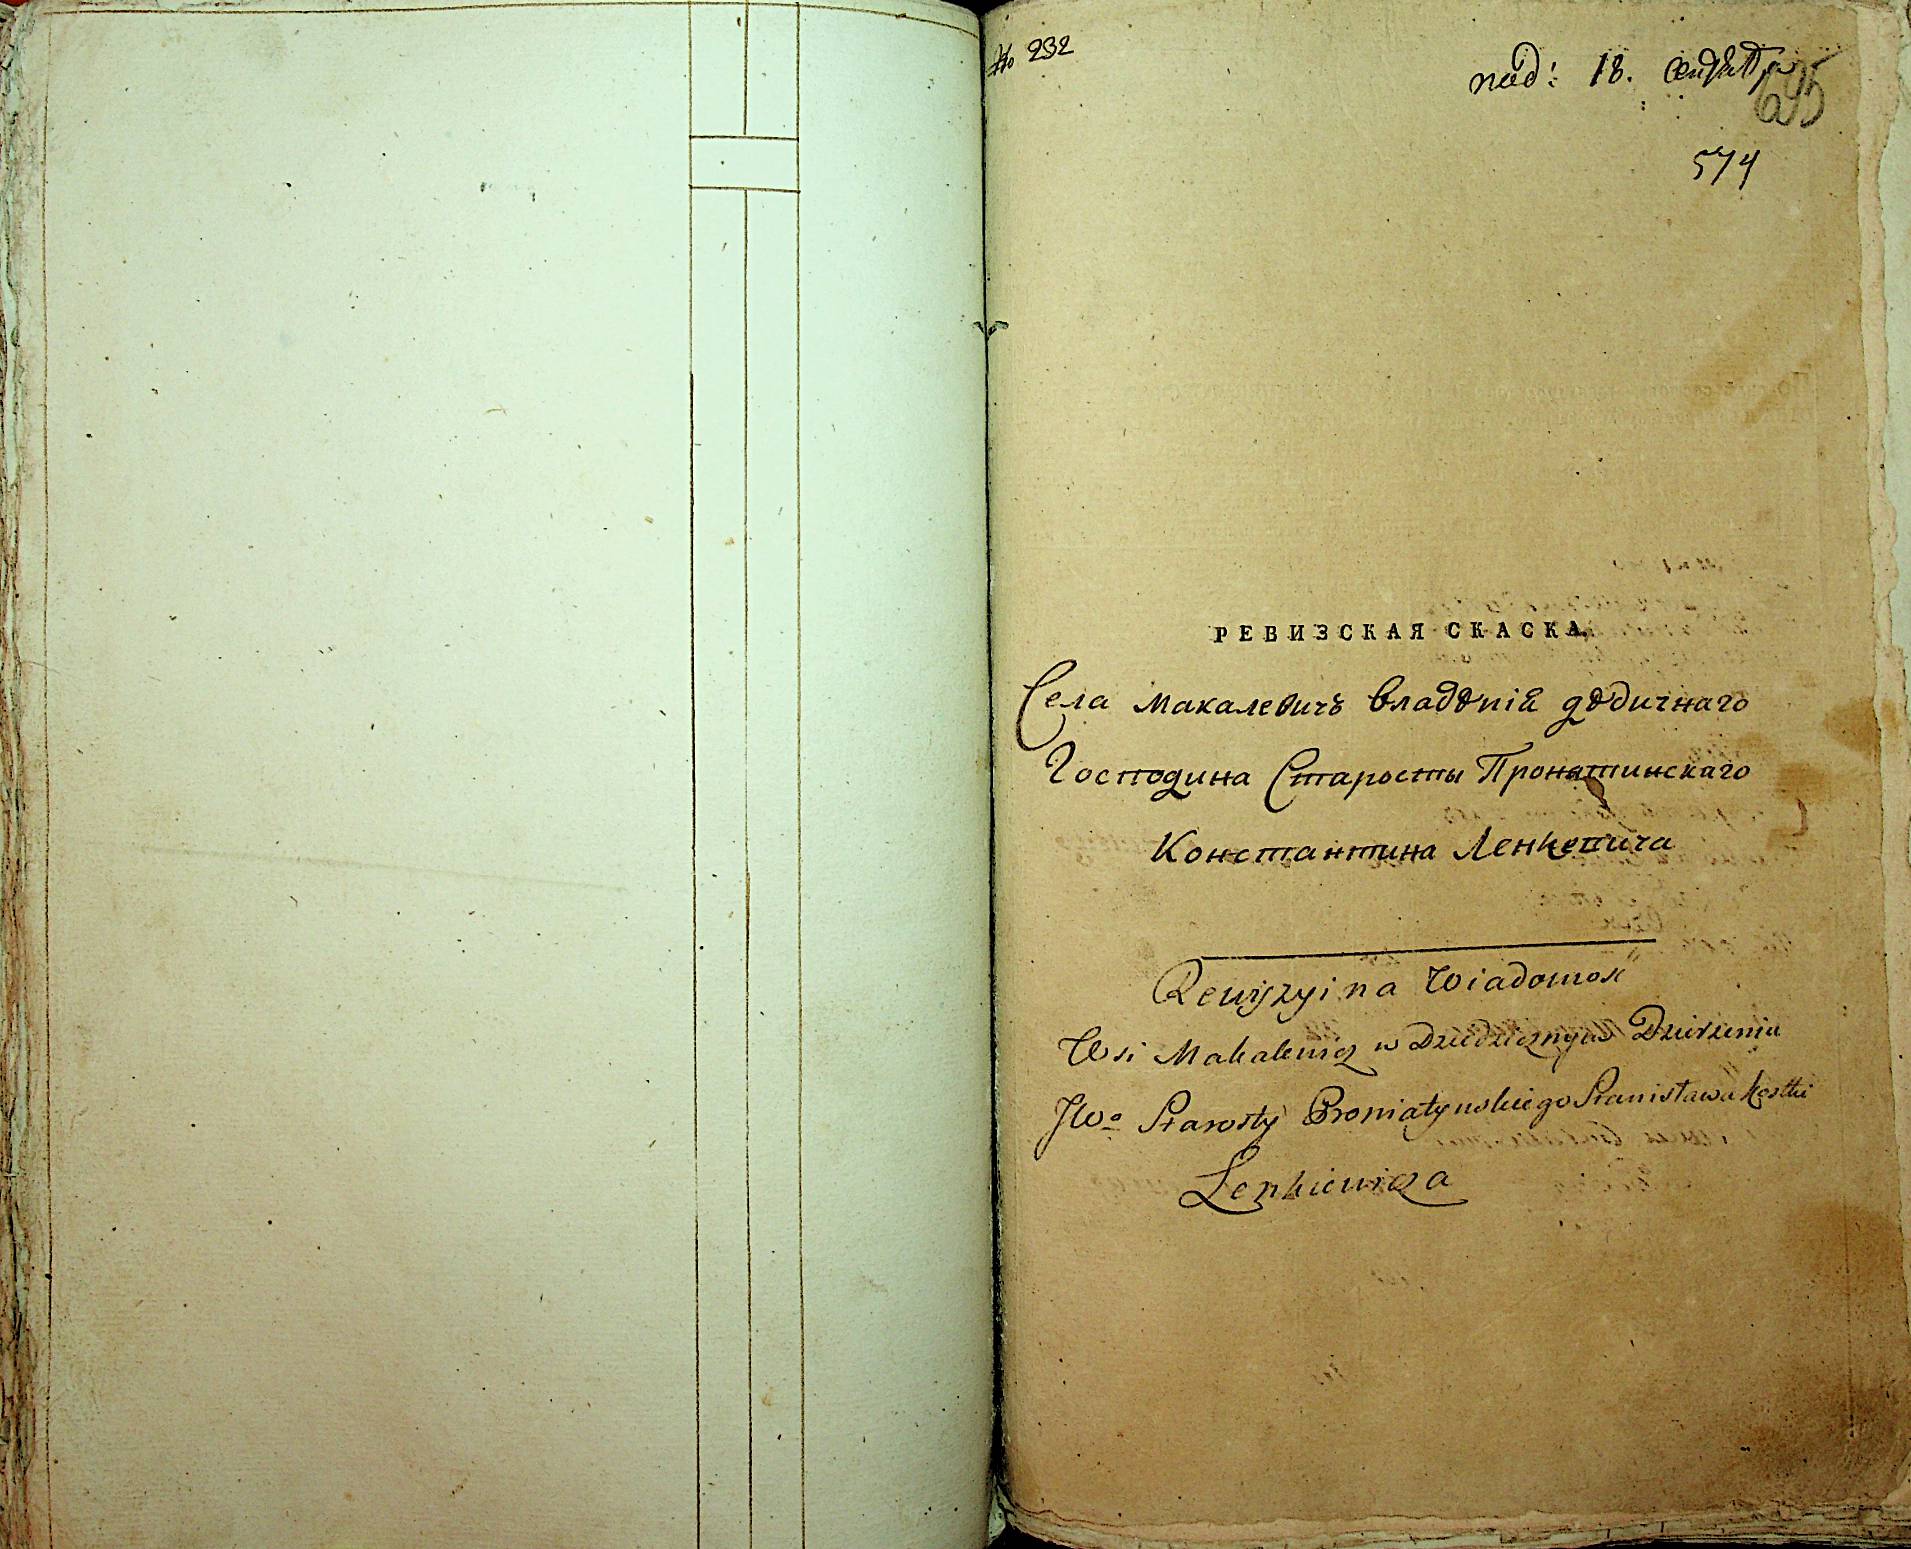 № 232
под: 18. сентября
695
574
РЕВИЗСКАЯ СКАСКА
Села Макалевичъ владѣнія дѣдичнаго
Господина Старосты Пронятинскаго
Константина Ленкевича
Rewizyina Wiadomość
Wsi Makalewicz w Dziedzicznym Dzierżeniu
JWo Starosty Proniatynskiego Stanisława Kostki
Lenkiewicza